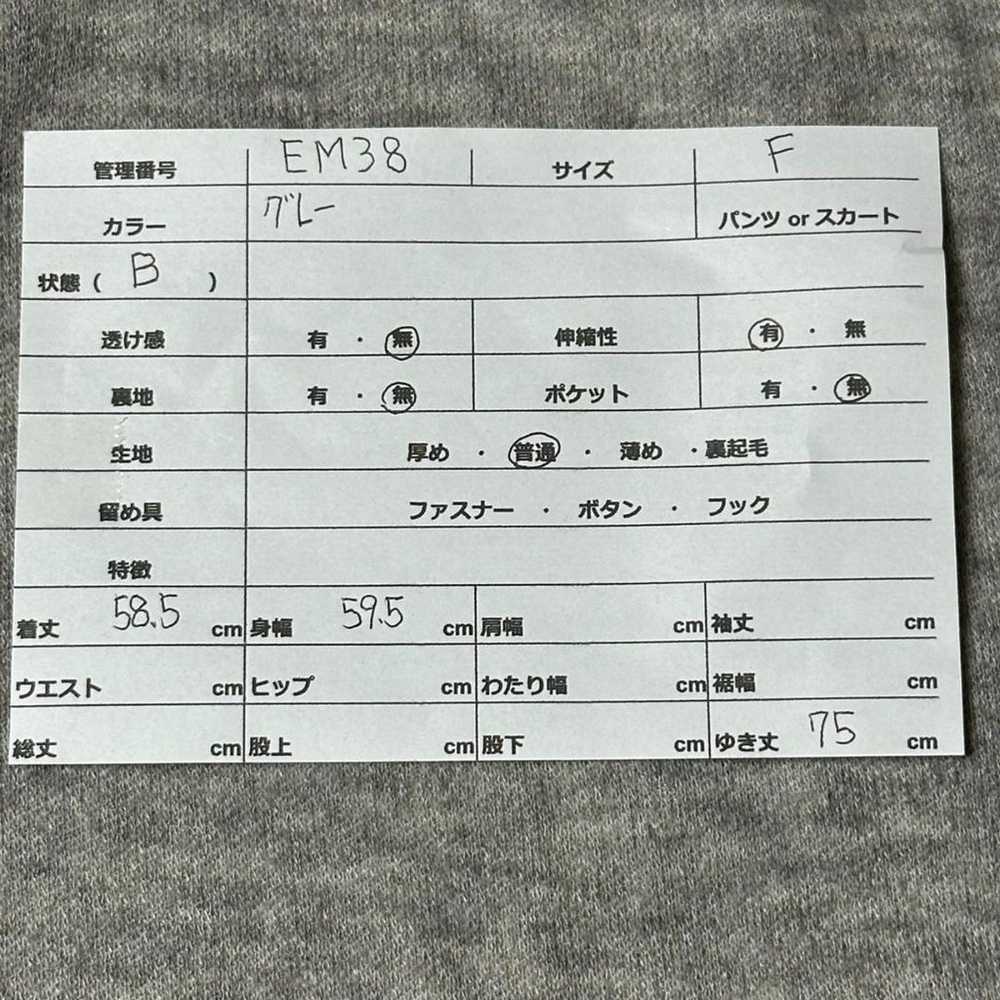 管理番号 EM38 サイズ F
カラー グレー パンツ or スカート
状態（ B ）
透け感 有 ・ 無 伸縮性 有 ・ 無
裏地 有 ・ 無 ポケット 有 ・ 無
生地 厚め ・ 普通 ・ 薄め ・裏起毛
留め具 ファスナー ・ ボタン ・ フック
特徴
着丈 58.5 cm 身幅 59.5 cm 肩幅 cm 袖丈 cm
ウエスト cm ヒップ cm わたり幅 cm 裾幅 cm
総丈 cm 股上 cm 股下 cm ゆき丈 75 cm